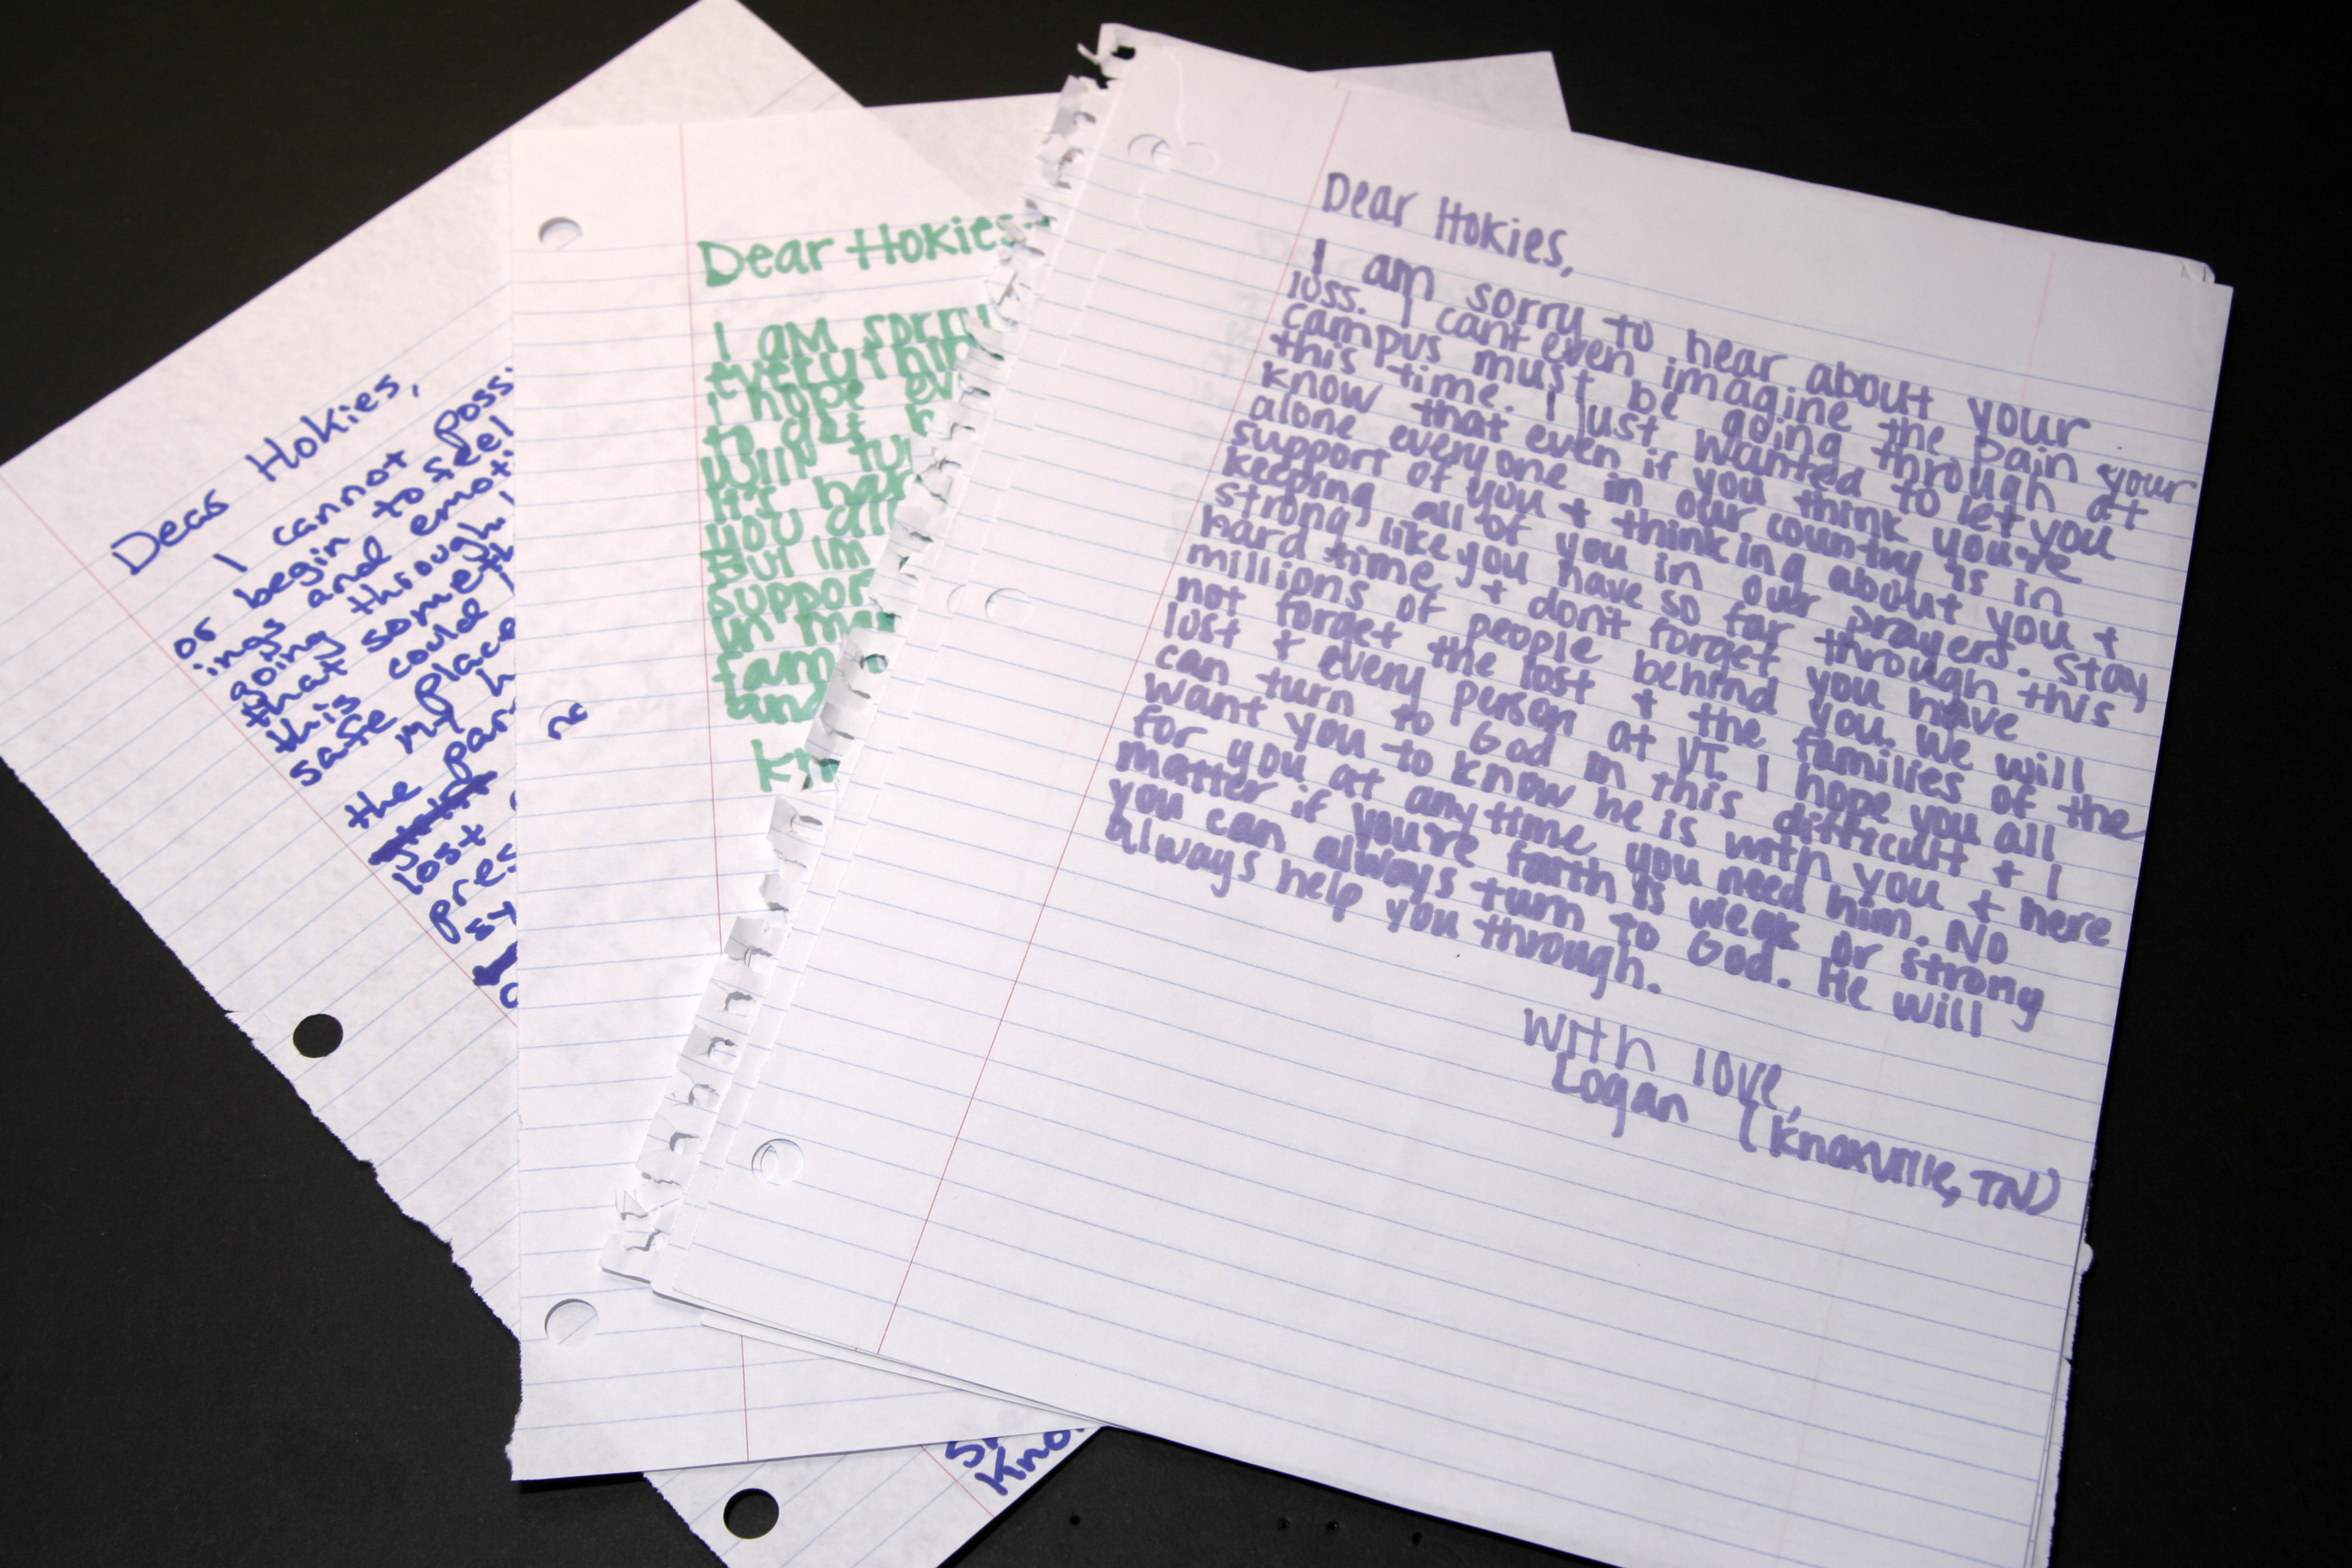 Dear Hokies,
I cannot poss
or begin to feel
ings and emoti
going through
that someth
this could
safe place
my h
the par
lost
pres
sy
Sr
Kno
Dear Hokies-
I am sorry
everythin
i hope ev
to get h
will tu
it's har
you all
But im
suppor
in ma
fam
and
Kn
Dear Hokies,
I am sorry to hear about your
loss. I cant even imagine the pain your
campus must be going through at
this time. I just wanted to let you
know that even if you think you're
alone everyone in our country is in
support of you + thinking about you +
keeping all of you in our prayers. Stay
strong like you have so far through this
hard time + don't forget you have
millions of people behind you. We will
not forget the lost + the families of the
lost + every person at VT. I hope you all
can turn to God in this difficult + I
want you to know he is with you + here
for you at anytime you need him. No
matter if you're faith is weak or strong
you can always turn to God. He will
always help you through.
With love,
Logan (Knoxville, TN)